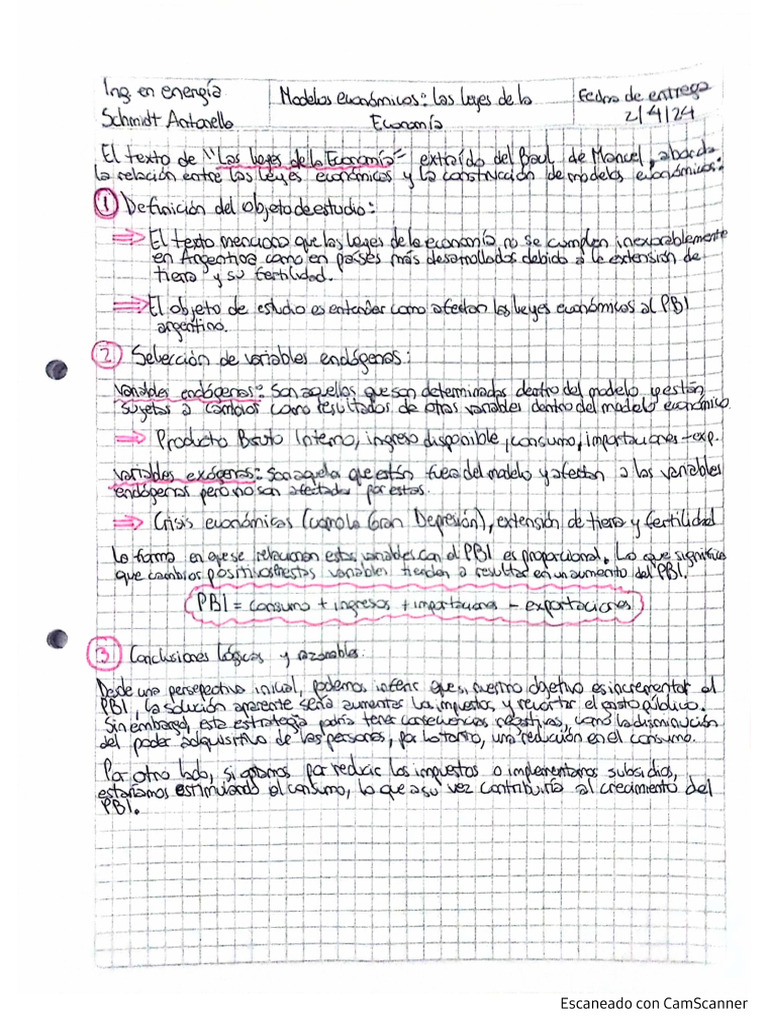 Ing. en energía
Schmidt Antonella
Modelos económicos: Las leyes de la
Economía
Fecha de entrega
2/4/24
El texto de "Las leyes de la Economía" extraído del Baul de Manuel, aborda
la relación entre las leyes económicas y la construcción de modelos económicos:
1 Definición del objeto de estudio:
⇒ El texto menciona que las leyes de la economía, no se cumplen inexorablemente
en Argentina como en países más desarrollados debido a la extensión de
tierra y su fertilidad.
⇒ El objeto de estudio es entender como afectan las leyes económicas al PBI
argentino.
2 Selección de variables endógenas:
Variables endógenas: Son aquellas que son determinadas dentro del modelo, y están
sujetas a cambios como resultados de otras variables dentro del modelo económico.
⇒ Producto Bruto Interno, ingreso disponible, consumo, importaciones - exp.
Variables exógenas: Son aquella que están fuera del modelo y afectan a las variables
endógenas pero no son afectadas por estas.
⇒ Crisis económicas (como la Gran Depresión), extensión de tierra y fertilidad
La forma en que se relacionan estas variables con el PBI es proporcional. Lo que significa
que cambios positivos estas variables tienden a resultar en un aumento del PBI.
PBI = consumo + ingresos + importaciones - exportaciones
3 Conclusiones lógicas y razonables:
Desde una perspectiva inicial, podemos inferir que si nuestro objetivo es incrementar el
PBI, la solución aparente sería aumentar los impuestos y recortar el gasto público.
Sin embargo, esta estrategia podría tener consecuencias negativas, como la disminución
del poder adquisitivo de las personas, por lo tanto, una reducción en el consumo.
Por otro lado, si optamos por reducir los impuestos o implementamos subsidios,
estaríamos estimulando el consumo, lo que a su vez contribuiría al crecimiento del
PBI.
Escaneado con CamScanner